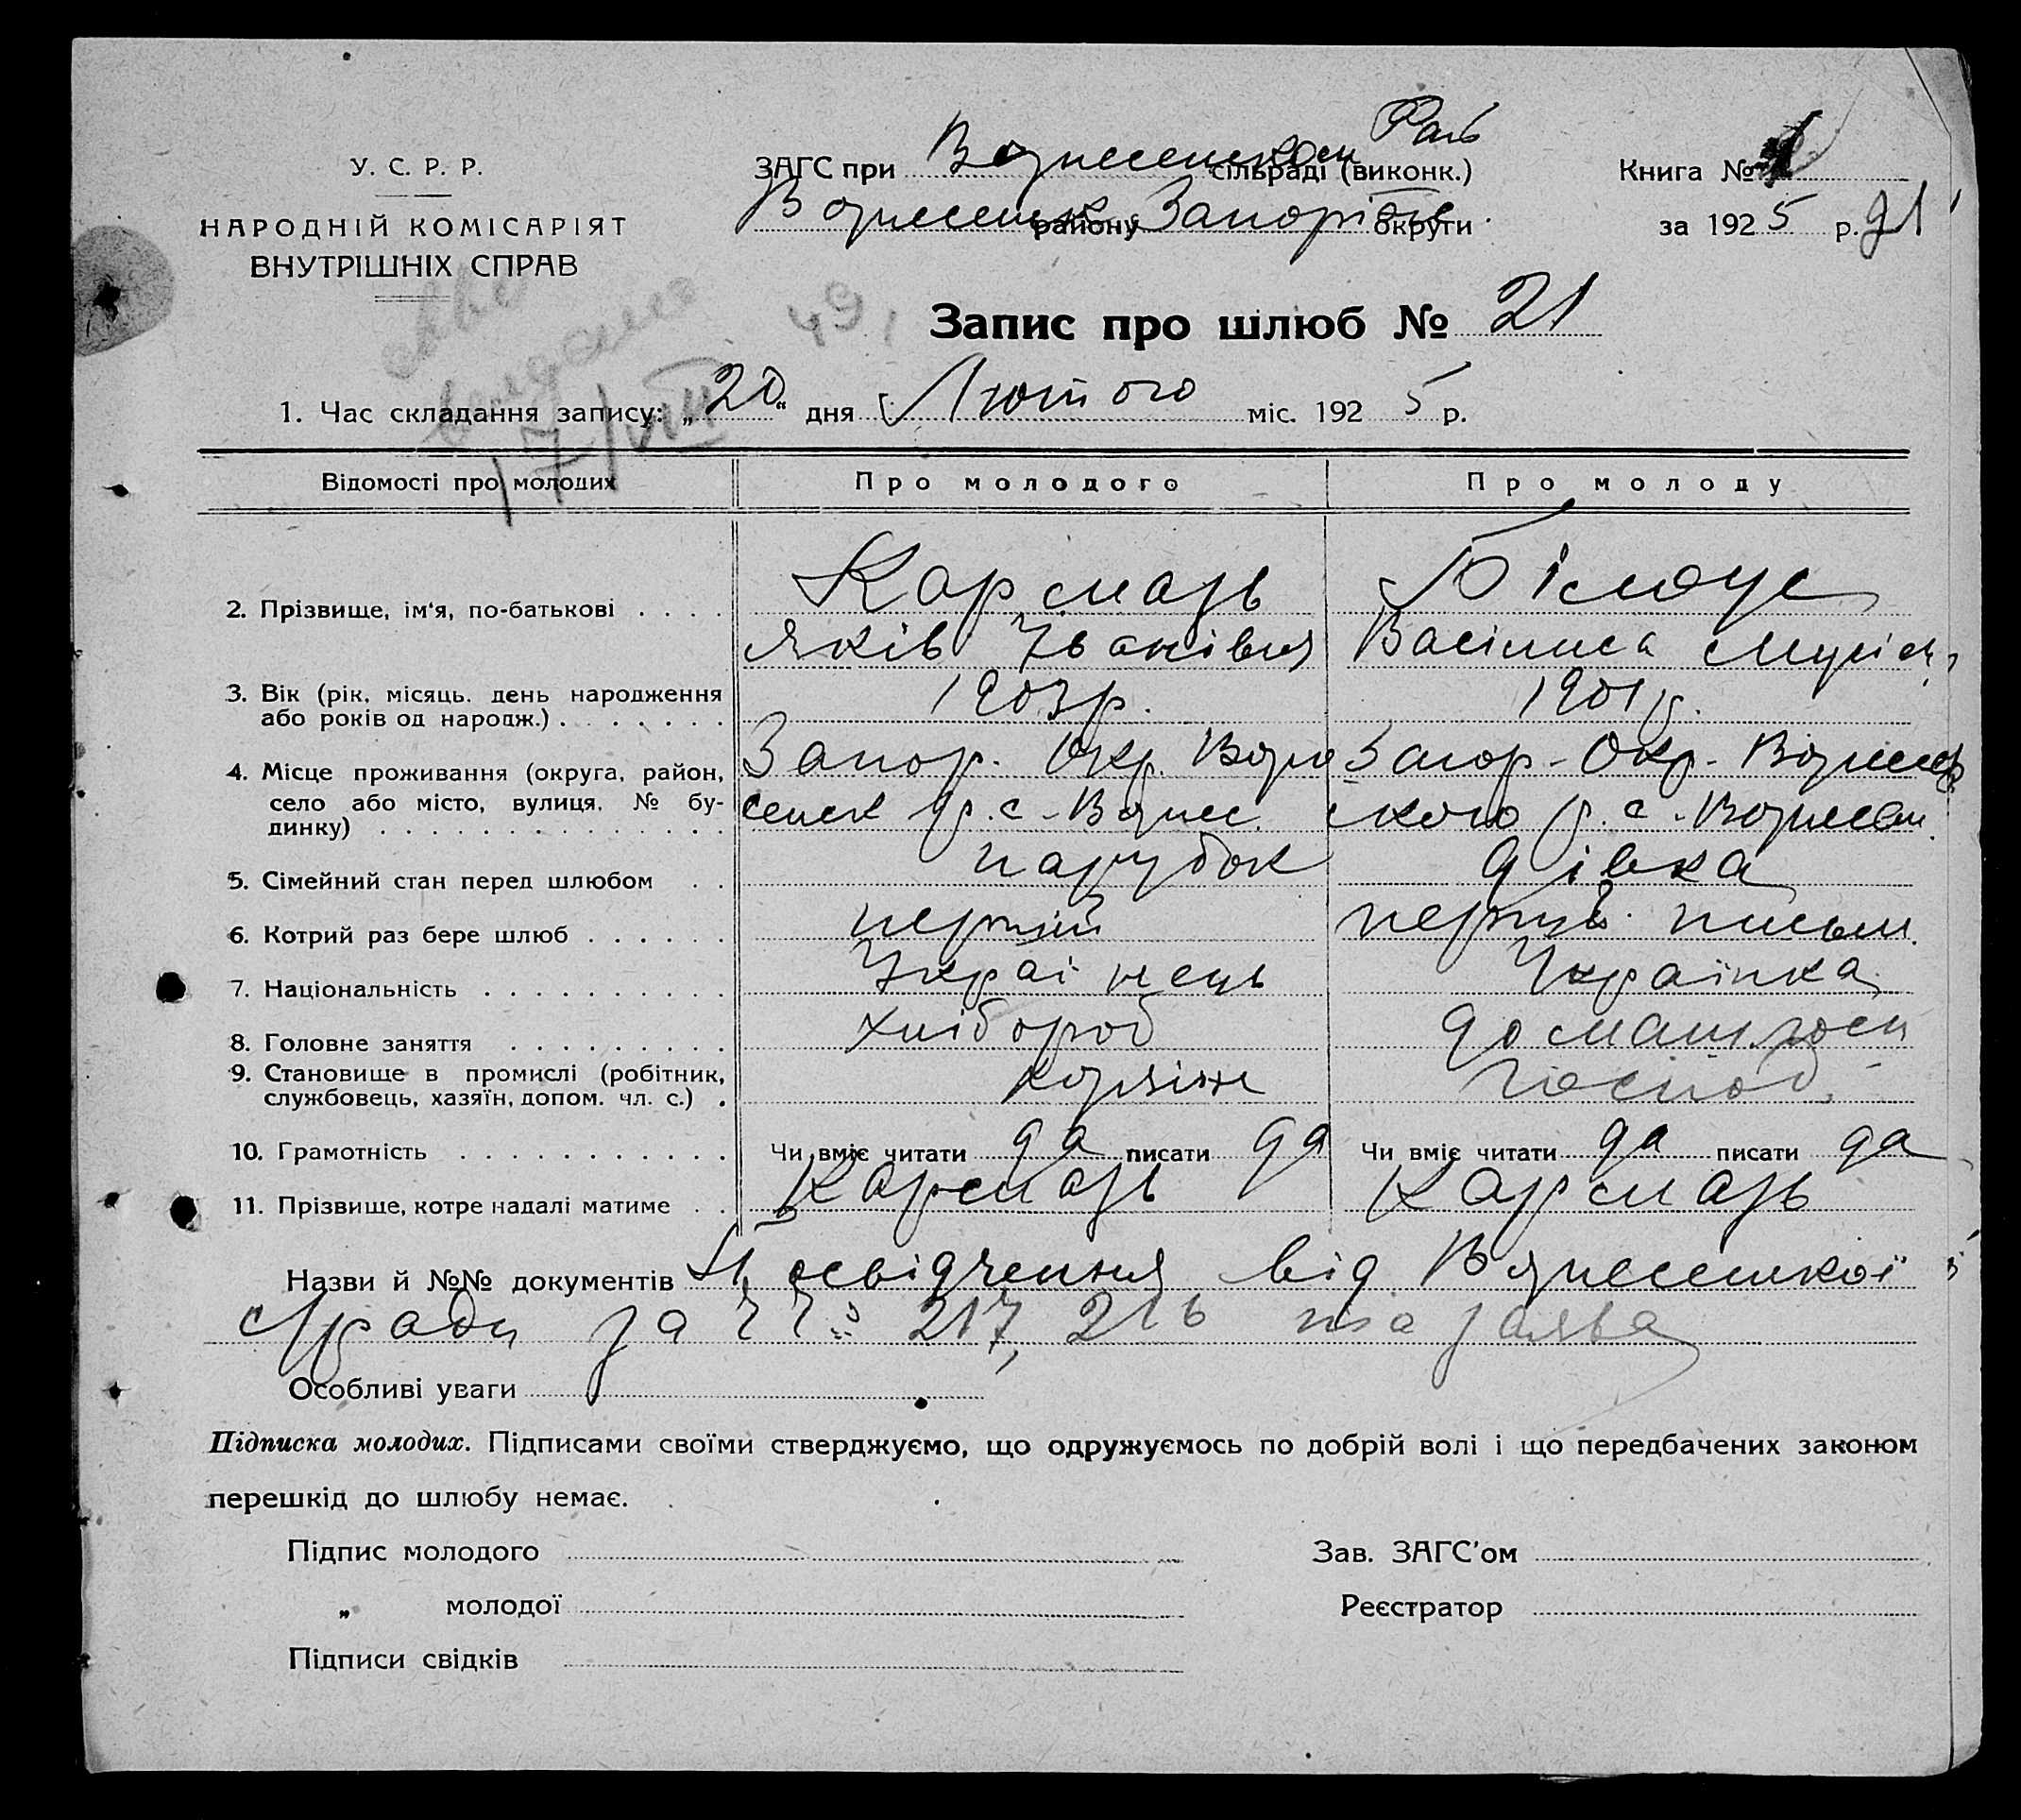 У. С. Р. Р.
НАРОДНІЙ КОМІСАРІЯТ
ВНУТРІШНІХ СПРАВ
ЗАГС при Вознесенском Рай
сільраді (виконк.)
Вознесенск району Запоріжс округи
Книга №
за 1925 р. 91
49
Запис про шлюб № 21
1. Час складання запису: „20“ дня Лютого міс. 1925 р.
17/VIII
Відомості про молодих Про молодого Про молоду
2. Прізвище, ім'я, по-батькові . . . . Кармазь Білоус
Яків Іванівич Василиса
3. Вік (рік, місяць, день народження
або років од народж.) . . . . . . . 1903р. 1901р.
4. Місце проживання (округа, район, Запор. Окр. Возне Запор. Окр. Вознесен
село або місто, вулиця, № бу- сенск р. с. Вознес. ского р. с. Вознесен.
динку) . . . . . . . . . . . . . .
5. Сімейний стан перед шлюбом . . парубок дівка
6. Котрий раз бере шлюб . . . . . . перший перший
7. Національність . . . . . . . . . . Українець Українка
8. Головне заняття . . . . . . . . . хлібороб домашн госп
9. Становище в промислі (робітник,
службовець, хазяїн, допом. чл. с.) . господ.
10. Грамотність . . . . . . . . . . . Чи вміє читати да писати да Чи вміє читати да писати да
11. Прізвище, котре надалі матиме . . Кармазь Кармазь
Назви й №№ документів Посвідчення від Вознесенскої
с/ради за 217, 216 заява
Особливі уваги
Підписка молодих. Підписами своїми стверджуємо, що одружуємось по добрій волі і що передбачених законом
перешкід до шлюбу немає.
Підпис молодого Зав. ЗАГС'ом
„ молодої Реєстратор
Підписи свідків